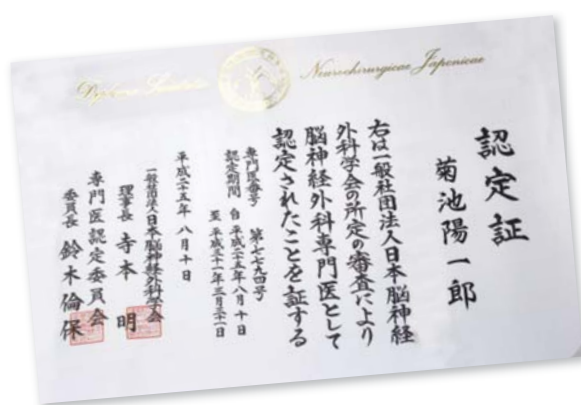 Neurochirurgicae Japonicae
認定証
菊池陽一郎
右は一般社団法人日本脳神経
外科学会の所定の審査により
脳神経外科専門医として
認定されたことを証する
専門医番号 第七七九四号
認定期間 自 平成二十五年八月十日
至 平成三十一年三月三十一日
平成二十五年 八月十日
一般社団法人日本脳神経外科学会
理事長 寺本 明
専門医認定委員会
委員長 鈴木倫保